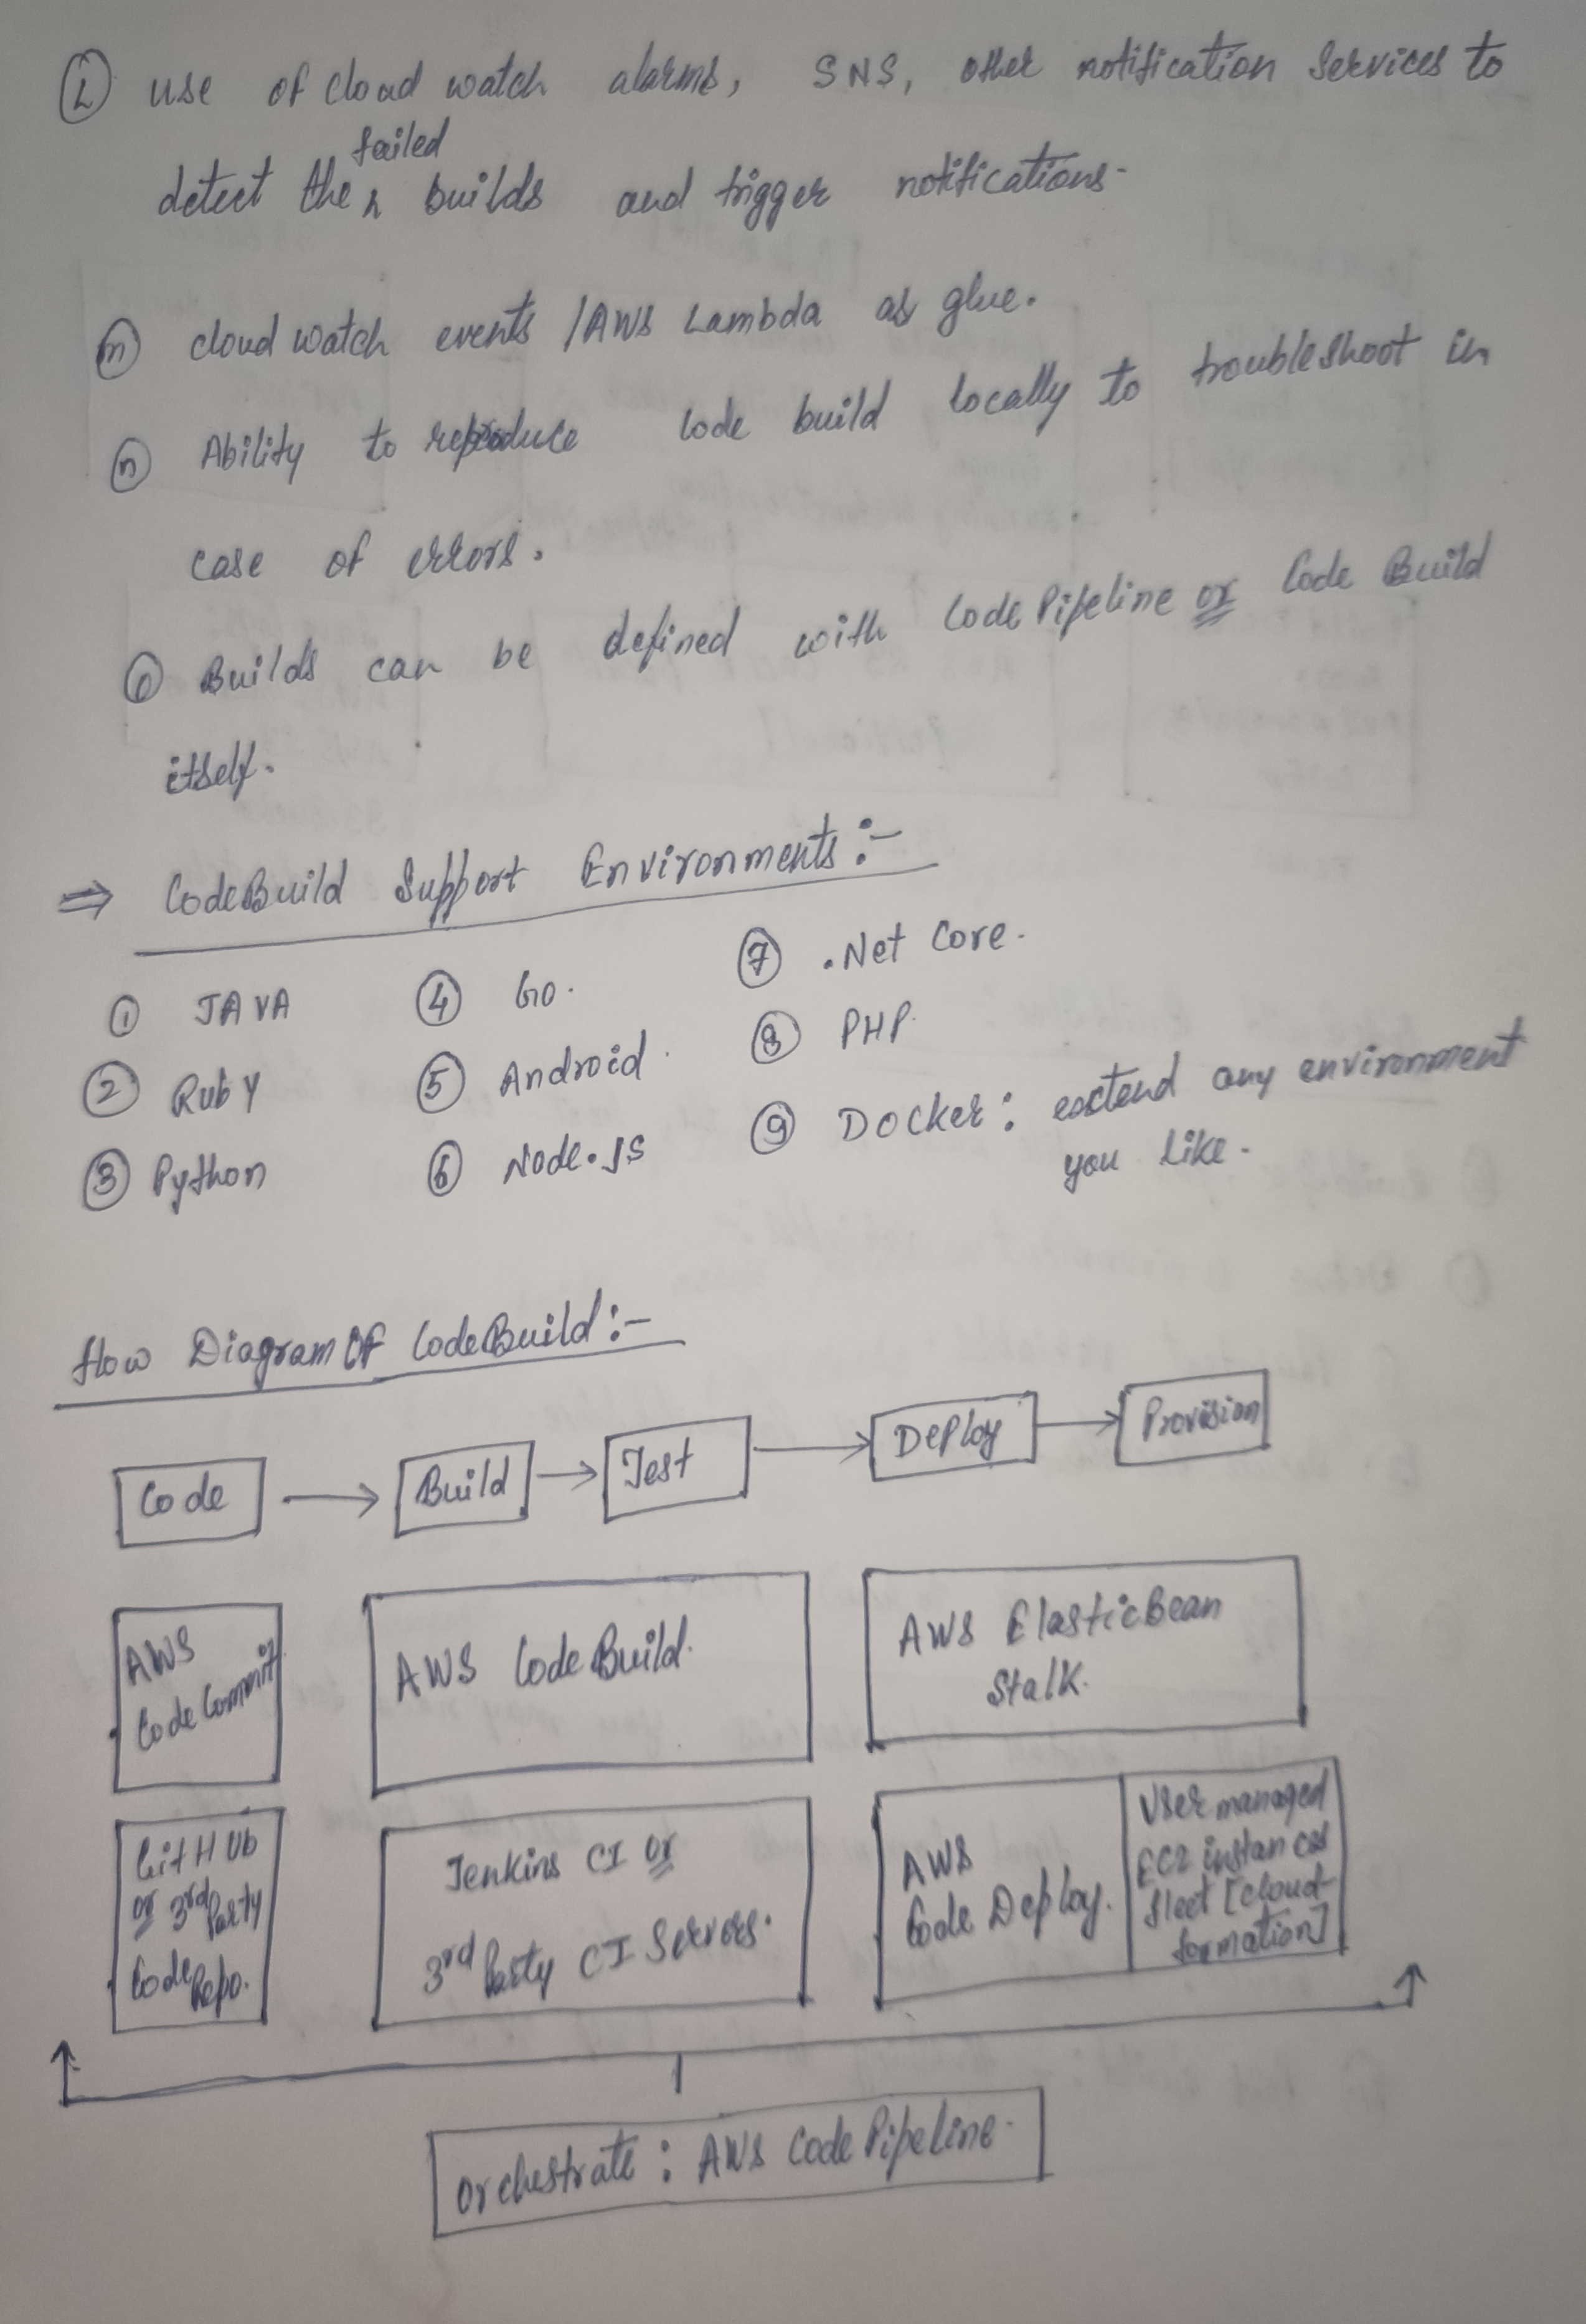 (L) use of cloud watch alarms, SNS, other notification Services to
failed
detect the ^ builds and trigger notifications.
(m) cloud watch events /AWS Lambda as glue.
(n) Ability to reproduce code build locally to troubleshoot in
case of errors.
(o) Builds can be defined with CodePipeline or Code Build
itself.
⇒ CodeBuild Support Environments:-
(1) JAVA (4) Go. (7) .Net Core.
(2) Ruby (5) Android. (8) PHP.
(3) Python (6) Node.JS (9) Docker: extend any environment
you like.
flow Diagram Of CodeBuild:-
Code → Build → Test → Deploy → Provision
AWS
CodeCommit
AWS CodeBuild.
AWS ElasticBean
Stalk.
GitHub
or 3rd Party
Code Repo.
Jenkins CI or
3rd Party CI Servers.
AWS
Code Deploy.
User managed
EC2 instances
fleet [Cloud-
formation]
Orchestrate: AWS CodePipeline.